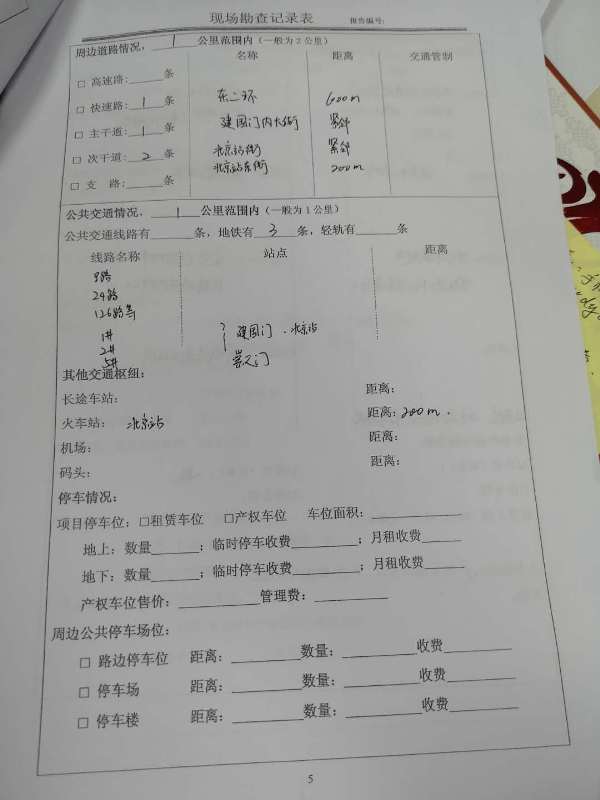 现场勘查记录表 报告编号:
周边道路情况, 1 公里范围内(一般为2公里)
名称 距离 交通管制
□ 高速路:____条
□ 快速路: 1 条 东二环 600m
□ 主干道: 1 条 建国门内大街 紧邻
□ 次干道: 2 条 北京站街 紧邻
北京站东街 200m
□ 支 路:____条
公共交通情况, 1 公里范围内(一般为1公里)
公共交通线路有____条,地铁有 3 条,轻轨有____条
线路名称 站点 距离
9路
24路
126路等
1#
2# 建国门、北京站
5# 崇文门
其他交通枢纽:
长途车站: 距离:
火车站: 北京站 距离: 200m.
机场: 距离:
码头: 距离:
停车情况:
项目停车位:□租赁车位 □产权车位 车位面积:____
地上:数量____;临时停车收费____;月租收费____
地下:数量____;临时停车收费____;月租收费____
产权车位售价:____管理费:____
周边公共停车场位:
□ 路边停车位 距离:____数量:____收费____
□ 停车场 距离:____数量:____收费____
□ 停车楼 距离:____数量:____收费____
5